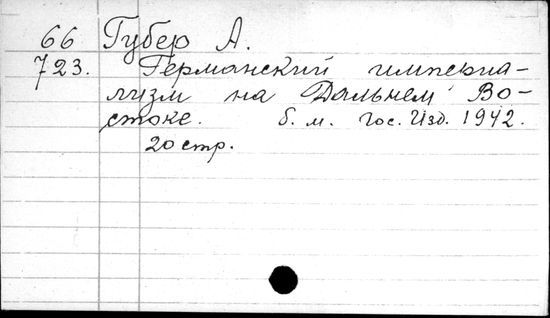 66 Губер А.
723. Германский империа-
лизм на Дальнем Во-
стоке. б. м. Гос. Изд. 1942.
20 стр.